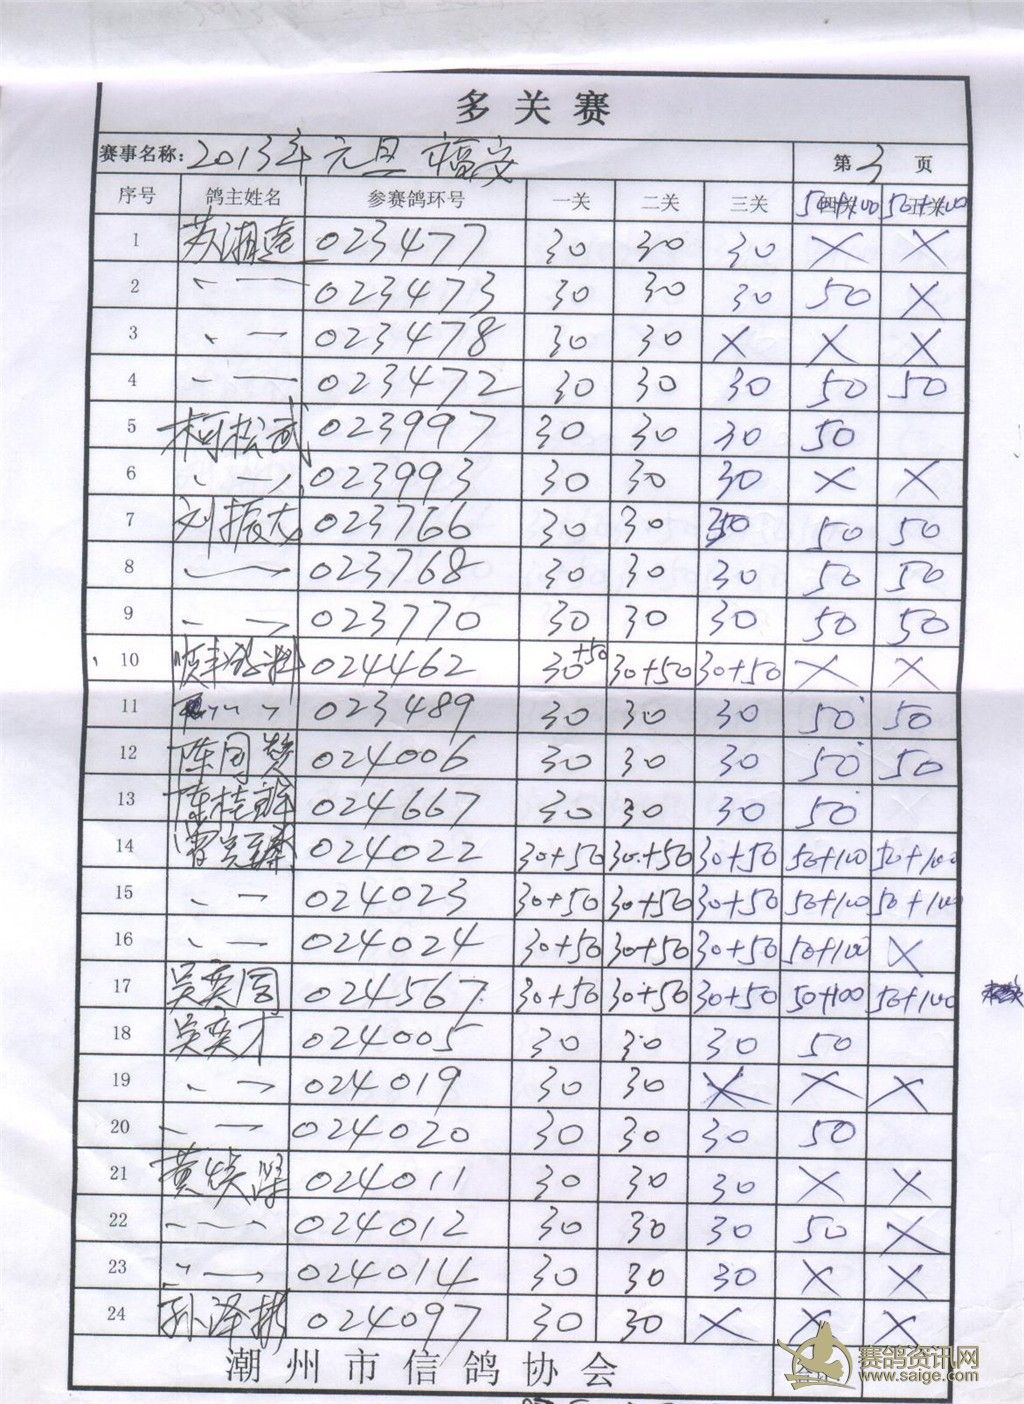 多关赛
赛事名称: 2013年元旦福安 第 3 页
序号 鸽主姓名 参赛鸽环号 一关 二关 三关 50+100 50+100
1 苏湘 023477 30 30 30 X X
2 〃 — 023473 30 30 30 50 X
3 〃 — 023478 30 30 X X X
4 〃 — 023472 30 30 30 50 50
5 柯松武 023997 30 30 30 50
6 〃 — 023993 30 30 30 X X
7 刘振龙 023766 30 30 30 50 50
8 〃 — 023768 30 30 30 50 50
9 〃 — 023770 30 30 30 50 50
10 顺丰饲料 024462 30+50 30+50 30+50 X X
11 〃 〃 023489 30 30 30 50 50
12 陈同贤 024006 30 30 30 50 50
13 陈桂 024667 30 30 30 50
14 024022 30+50 30+50 30+50 50+100 50+100
15 〃 — 024023 30+50 30+50 30+50 50+100 50+100
16 〃 — 024024 30+50 30+50 30+50 50+100 X
17 吴奕 024567 30+50 30+50 30+50 50+100 50+100
18 吴奕才 024005 30 30 30 50
19 〃 — 024019 30 30 X X X
20 〃 — 024020 30 30 30 50
21 黄焕 024011 30 30 30 X X
22 〃 — 024012 30 30 30 50 X
23 〃 — 024014 30 30 30 X X
24 孙泽彬 024097 30 30 X X X
潮州市信鸽协会
赛鸽资讯网
www.saige.com